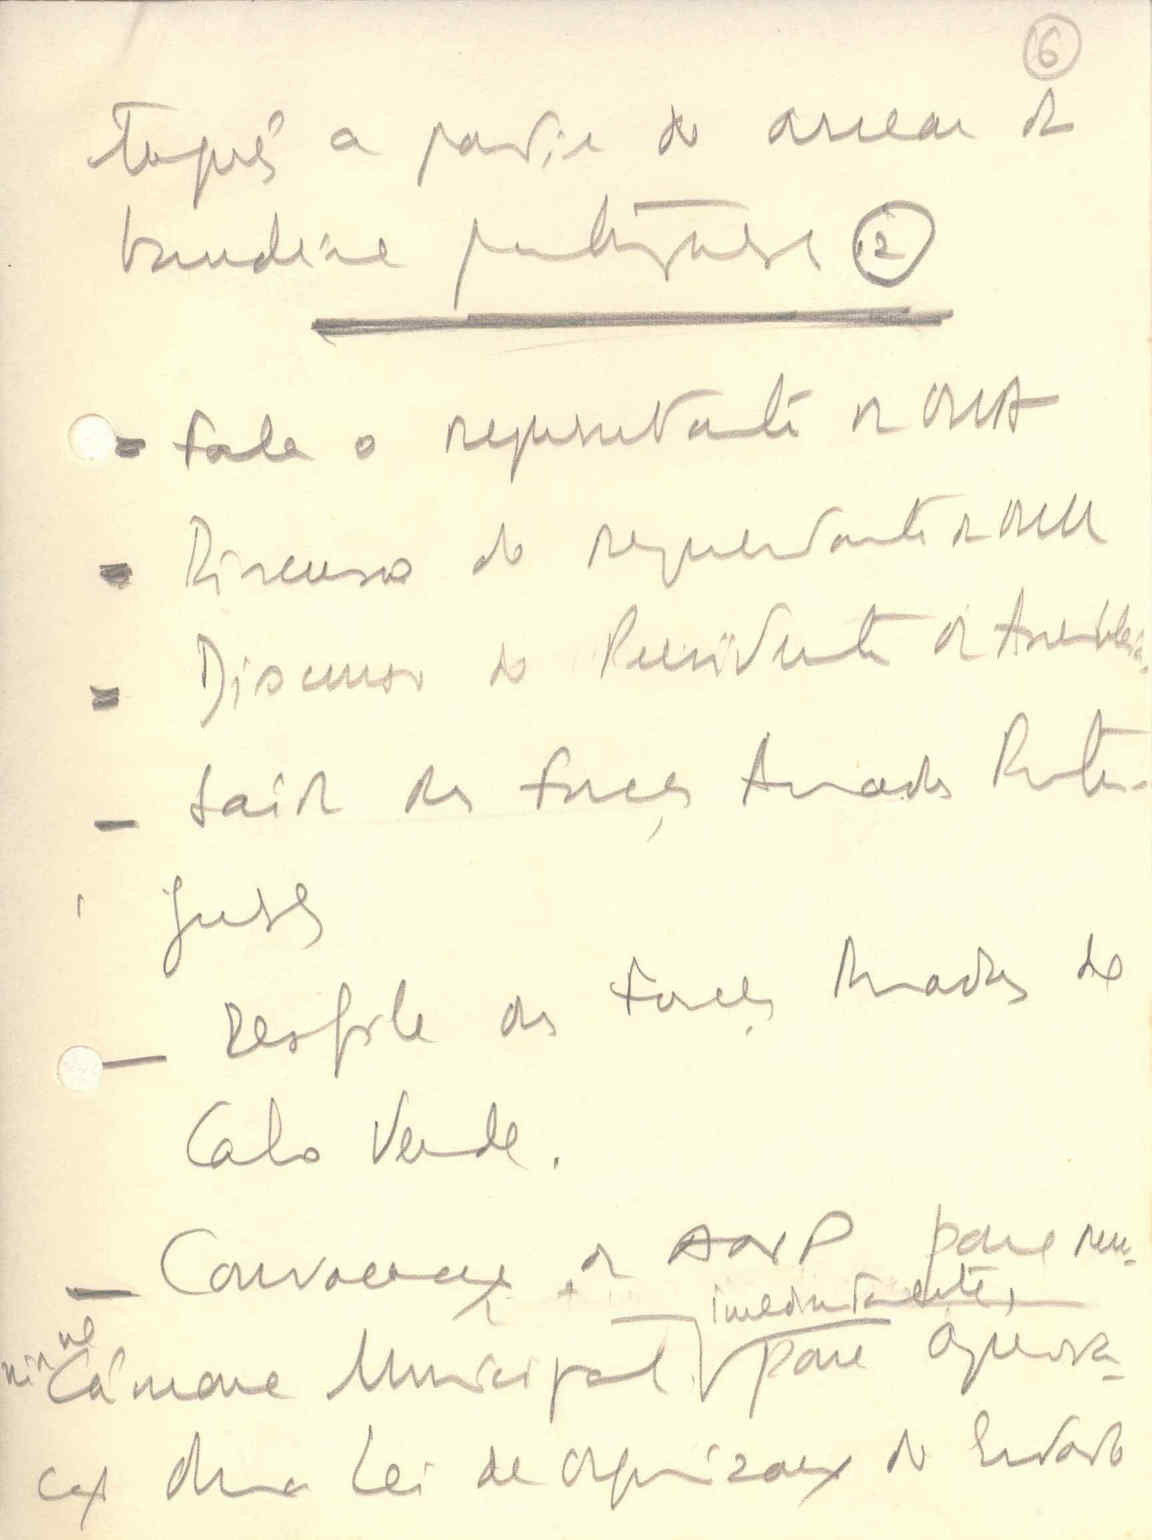 6
a partir do arrear da
bandeira portuguesa 2
- Fala o representante da ONU
- Discurso do representante da ONU
- Discurso do Presidente da Assembleia.
- Saída das Forças Armadas Portu-
guesas
- Desfile das Forças Armadas de
Cabo Verde.
- Convocação da ANP para reu-
imediatamente,
nir na
Câmara Municipal para aprova-
ção duma Lei de organização do Estado